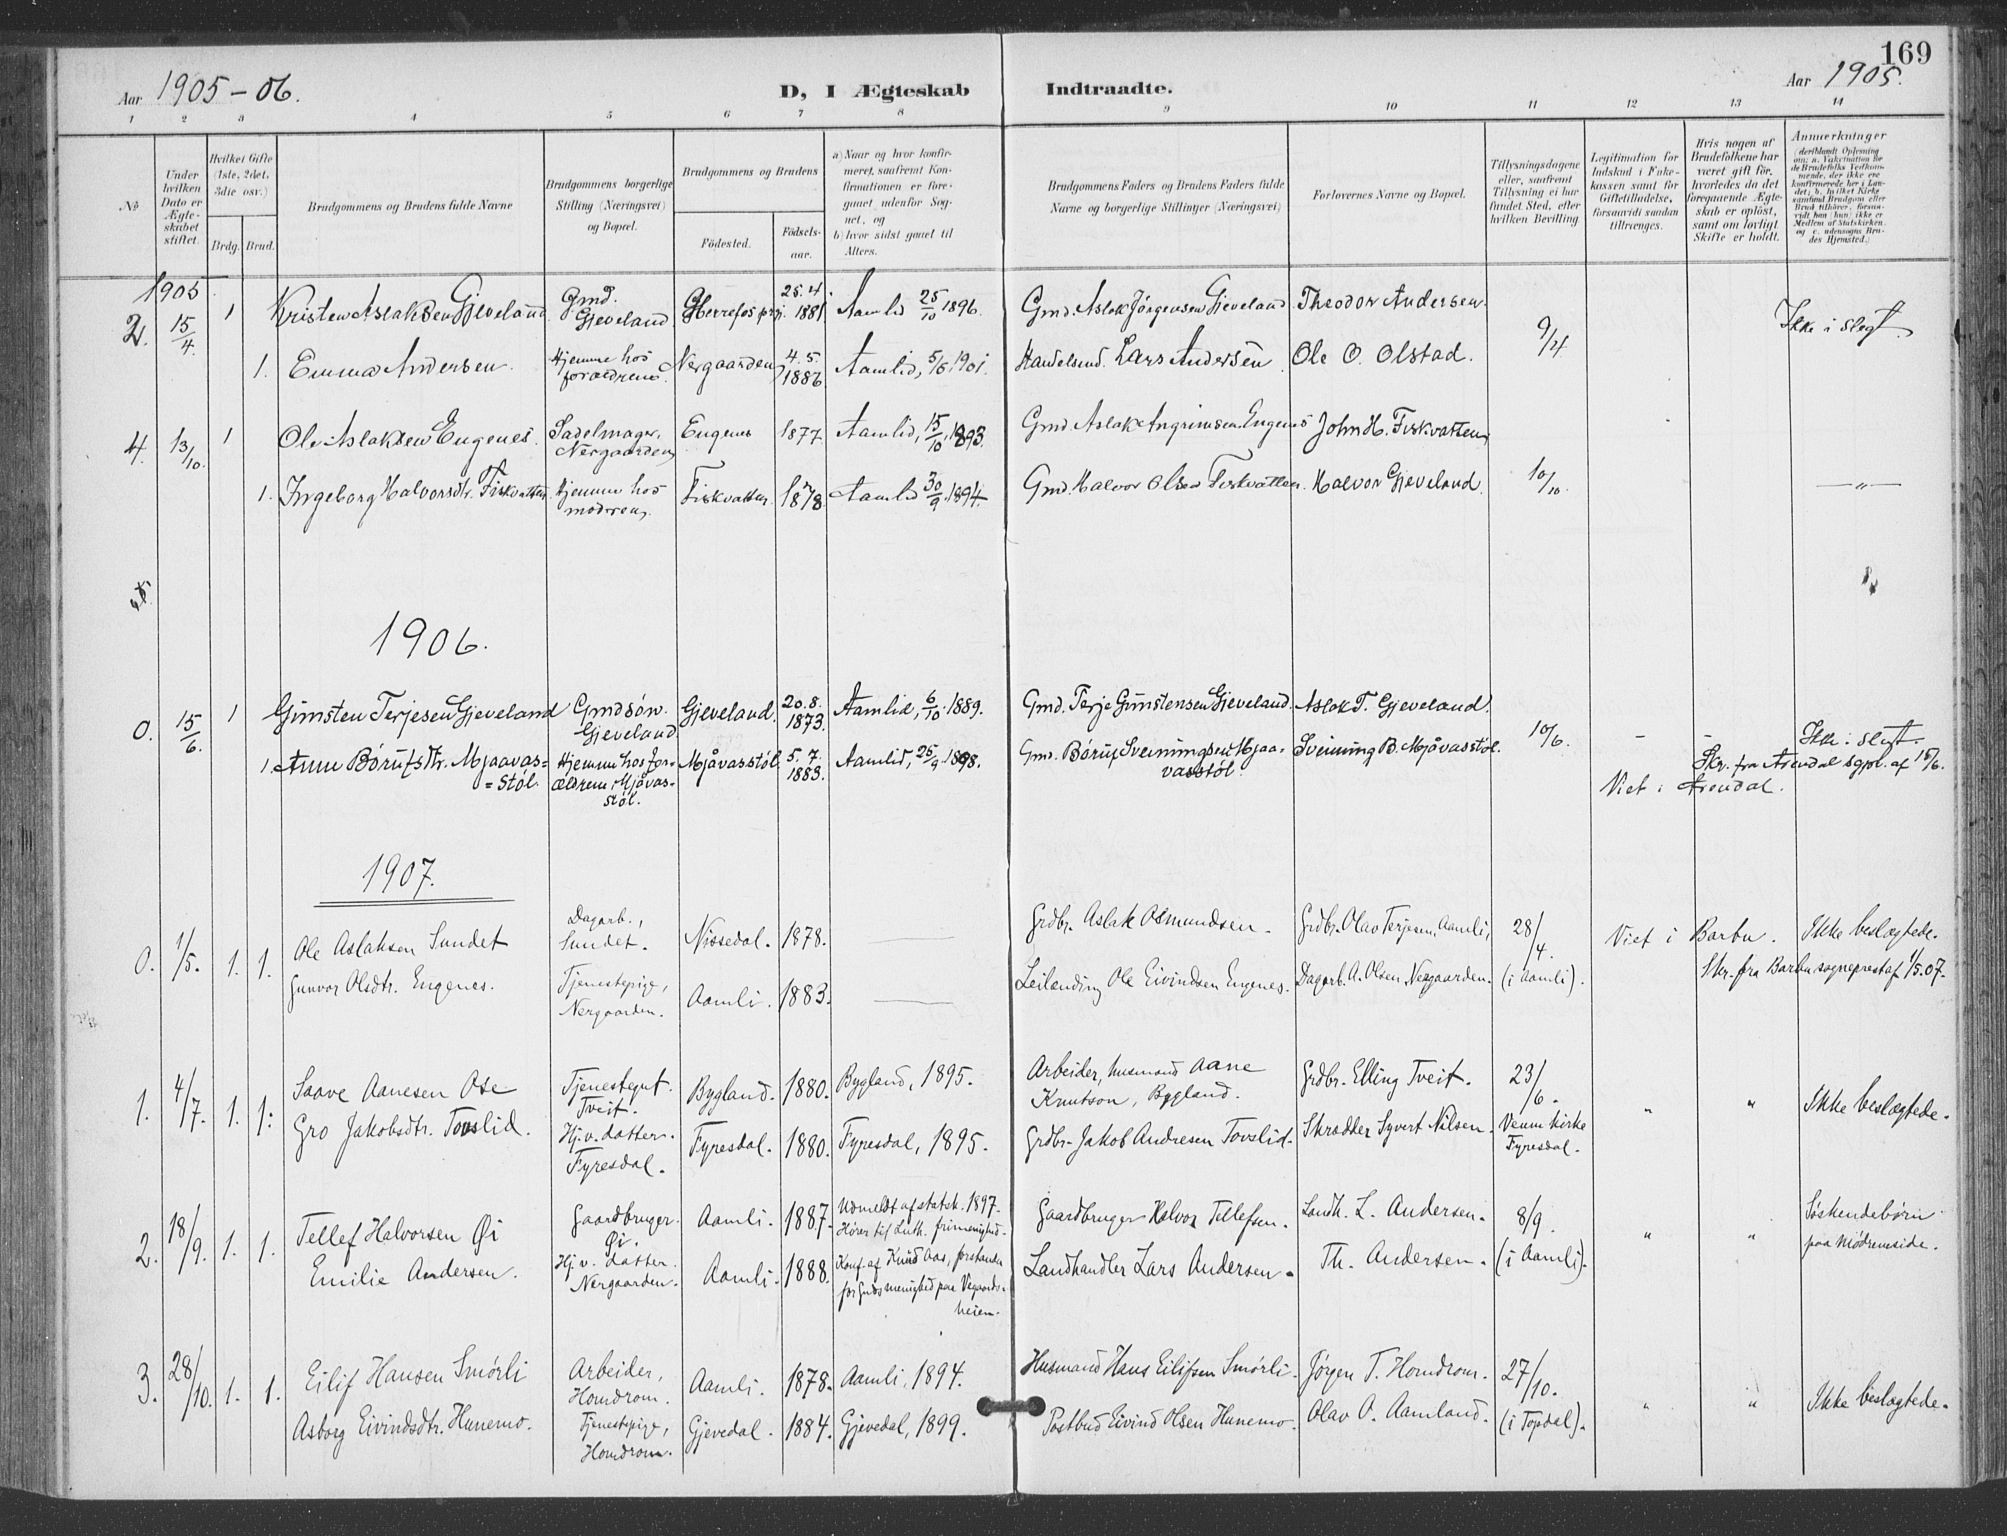 169
Aar 1905-06.
D, I Ægteskab Indtraadte.
Aar 1905.
1 2 3 4 5 6 7 8 9 10 11 12 13 14
No
Under hvilken Dato er Ægteskabet stiftet.
Hvilket Gifte (1ste, 2det, 3die osv.)
Brdg. Brud.
Brudgommens og Brudens fulde Navne
Brudgommens borgerlige Stilling (Næringsvei) og Bopæl.
Brudgommens og Brudens
Födested.
Födselsaar.
a) Naar og hvor konfirmeret, saafremt Konfirmationen er foregaaet udenfor Sognet, og
b) hvor sidst gaaet til Alters.
Brudgommens Faders og Brudens Faders fulde Navne og borgerlige Stillinger (Næringsvei)
Forlovernes Navne og Bopæl.
Tillysningsdagene eller, saafremt Tillysning ei har fundet Sted, efter hvilken Bevilling
Legitimation for Indskud i Enkekassen samt for Giftetilladelse, forsaavidt saadan tiltrænges.
Hvis nogen af Brudefolkene har været gift før, hvorledes da det foregaaende Ægteskab er opløst, samt om lovligt Skifte er holdt.
Anmerkninger
1905
2. 15/4. 1 Kristen Aslaksen Gjeveland Gmd. Gjeveland Herrefos 25.4. 1881 Aamlid 25/10 1896. Gmd. Aslak Jörgensen Gjeveland Theodor Andersen. 9/4 Ikke i slegt.
1. Emma Andersen. Hjemme hos forældrene. Nergaarden 4.5. 1886 Aamlid, 5/6 1901. Handelsmd. Lars Andersen Ole O. Olstad.
4. 13/10. 1 Ole Aslaksen Engenes. Sadelmager, Nergaarden Engenes 1877. Aamlid, 15/10 1893. Gmd. Aslak Angrimsen Engenes John H. Fiskvatten 10/10. — " —
1. Ingeborg Halvorsdtr. Fiskvatten Hjemme hos moderen, Fiskvatten 1878 Aamlid 30/9 1894. Gmd. Halvor Olsen Fiskvatten. Halvor Gjeveland.
1906.
0. 15/6. 1 Gunsten Terjesen Gjeveland Gmdsøn. Gjeveland Gjeveland. 20.8. 1873. Aamlid, 6/10 1889. Gmd. Terje Gunstensen Gjeveland. Aslak T. Gjeveland. 10/6. - - Ikke i slegt.
1. Anne Børufsdtr. Mjaavas=
=støl. Hjemme hos forældrene Mjåvasstøl. Mjåvasstøl 5.7. 1883. Aamlid, 25/9 1898. Gmd. Børuf Sveinungsen Mjaavasstøl. Sveinung B. Mjåvasstøl. Skr. fra Arendal sgpl. af 15/6.
Viet i Arendal.
1907.
0. 1/5. 1. 1. Ole Aslaksen Sundet Dagarb., Sundet. Nissedal. 1878. — Grdbr. Aslak Osmundsen. Grdbr. Olav Terjesen, Aamli, 28/4. Viet i Barbu. Ikke beslægtede.
Gunvor Olsdtr. Engenes. Tjenestepige, Nergaarden. Aamli. 1883. — Leilending Ole Eivindsen Engenes. Dagarb. A. Olsen Nergaarden. (i Aamli). Skr. fra Barbu sogneprest af 1/5.07.
1. 4/7. 1. 1. Saave Aanesen Ose Tjenestegut. Tveit. Bygland. 1880. Bygland, 1895. Arbeider, husmand Aane Knutson, Bygland. Grdbr. Elling Tveit. 23/6. " " Ikke beslægtede.
Gro Jakobsdtr. Tovslid. Hj.v. datter. Fyresdal. Fyresdal. 1880. Fyresdal, 1895. Grdbr. Jakob Andresen Tovslid. Skrædder Syvert Nilsen. Veum Kirke Fyresdal.
2. 18/9. 1. 1. Tellef Halvorsen Øi Gaardbruger. Øi. Aamli. 1887. Udmeldt af statsk. 1897. Hører til Luth. frimenighed. Gaardbruger Halvor Tellefsen. Landh. L. Andersen. 8/9. " " Søskendebørn paa mødreneside.
Emilie Andersen. Hj.v. datter. Nergaarden. Aamli. 1888. Konf. af Knud Aas, forstander for Guds menighed paa Vegaardsheien. Landhandler Lars Andersen. Th. Andersen. (i Aamli).
3. 28/10. 1. 1. Eilif Hansen Smørli Arbeider, Homdrom. Aamli. 1878. Aamli, 1894. Husmand Hans Eilifsen Smørli. Jørgen T. Homdrom. 27/10. " " Ikke beslægtede.
Asborg Eivindsdtr. Hunemo. Tjenestepige, Homdrom. Gjevedal. 1884. Gjevedal, 1899. Postbud Eivind Olsen Hunemo. Olav O. Aamland. (i Topdal).